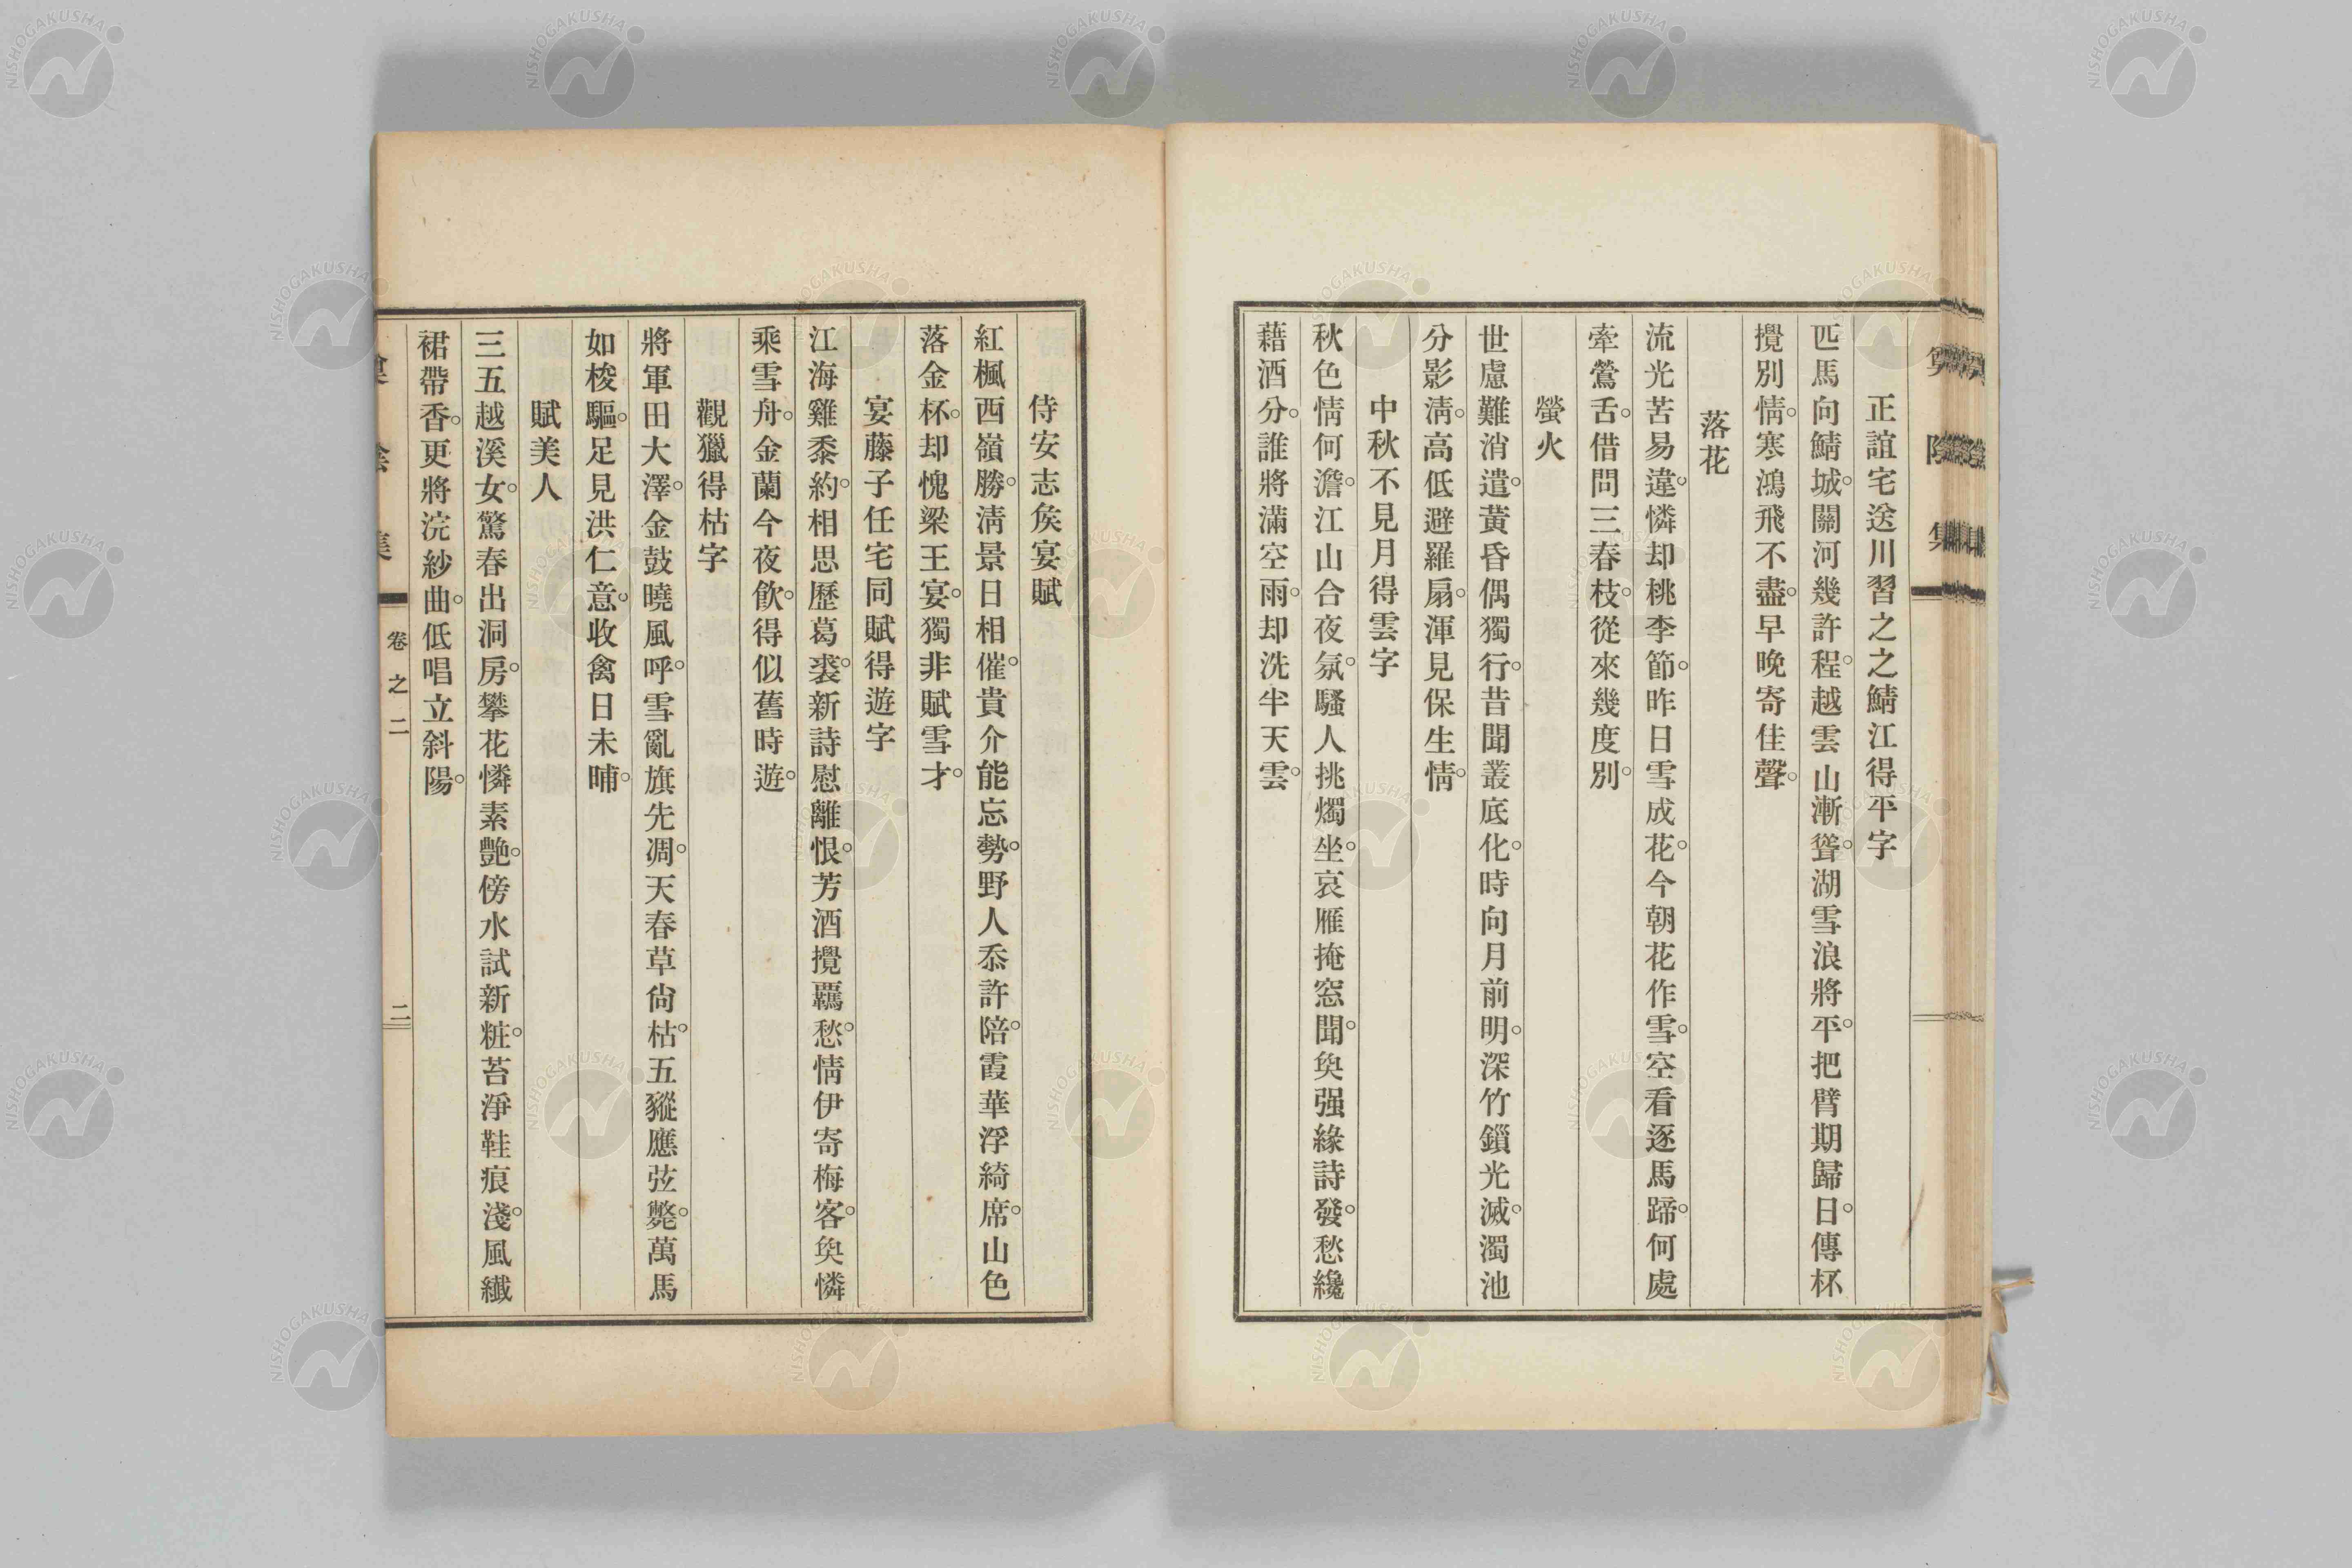 正誼宅送川習之之鯖江得平字
匹馬向鯖城。關河幾許程。越雲山漸聳。湖雪浪將平。把臂期歸日。傳杯
攪別情。寒鴻飛不盡。早晚寄佳聲。
落花
流光苦易違。憐却桃李節。昨日雪成花。今朝花作雪。空看逐馬蹄。何處
牽鶯舌。借問三春枝。從來幾度別。
螢火
世慮難消遣。黃昏偶獨行。昔聞叢底化。時向月前明。深竹鎖光滅。濁池
分影淸。高低避羅扇。渾見保生情。
中秋不見月得雲字
秋色情何澹。江山合夜氛。騷人挑燭坐。哀雁掩窓聞。奐强緣詩發。愁纔
藉酒分。誰將滿空雨。却洗半天雲。
侍安志矦宴賦
紅楓西嶺勝。淸景日相催。貴介能忘勢。野人忝許陪。霞華浮綺席。山色
落金杯。却愧梁王宴。獨非賦雪才。
宴藤子任宅同賦得遊字
江海雞黍約。相思歷葛裘。新詩慰離恨。芳酒攪覊愁。情伊寄梅客。奐憐
乘雪舟。金蘭今夜飮。得似舊時遊。
觀獵得枯字
將軍田大澤。金鼓曉風呼。雪亂旗先凋。天春草尙枯。五豵應弦斃。萬馬
如梭驅。足見洪仁意。收禽日未晡。
賦美人
三五越溪女。驚春出洞房。攀花憐素艷。傍水試新粧。苔淨鞋痕淺。風纖
裙帶香。更將浣紗曲。低唱立斜陽。
卷之二
二
NISHOGAKUSHA